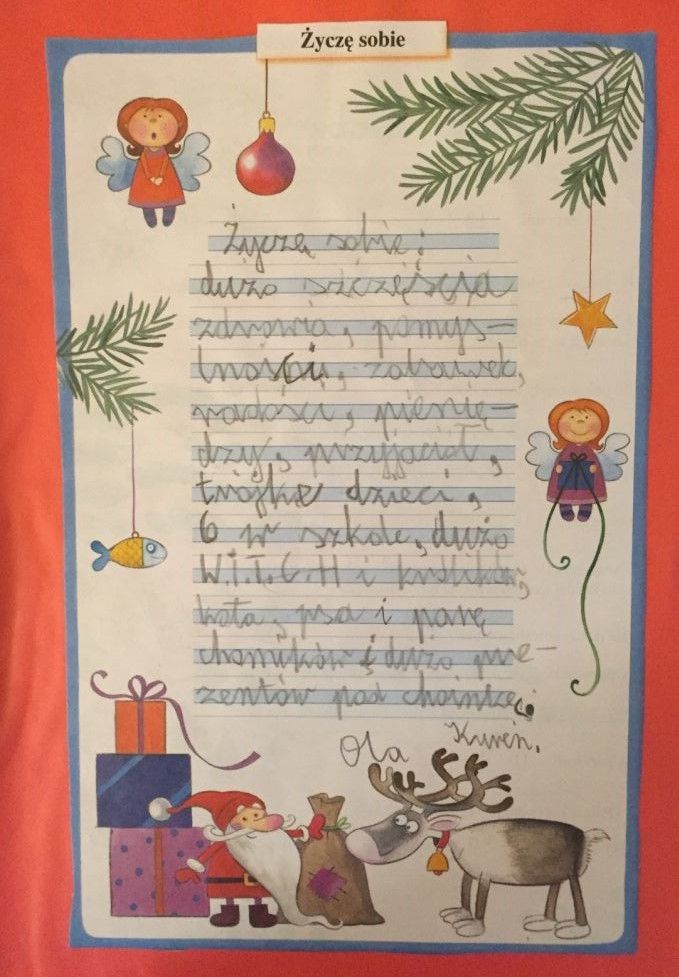 Życzę sobie
Życzę sobie:
dużo szczęścia
zdrowia, pomyś-
lności, zabawek,
radości, pienię-
dzy, przyjaciół,
trójkę dzieci,
6 w szkole, dużo
W.I.T.C.H i królików,
kota, psa i parę
chomików i dużo pre-
zentów pod choinkę.
Ola